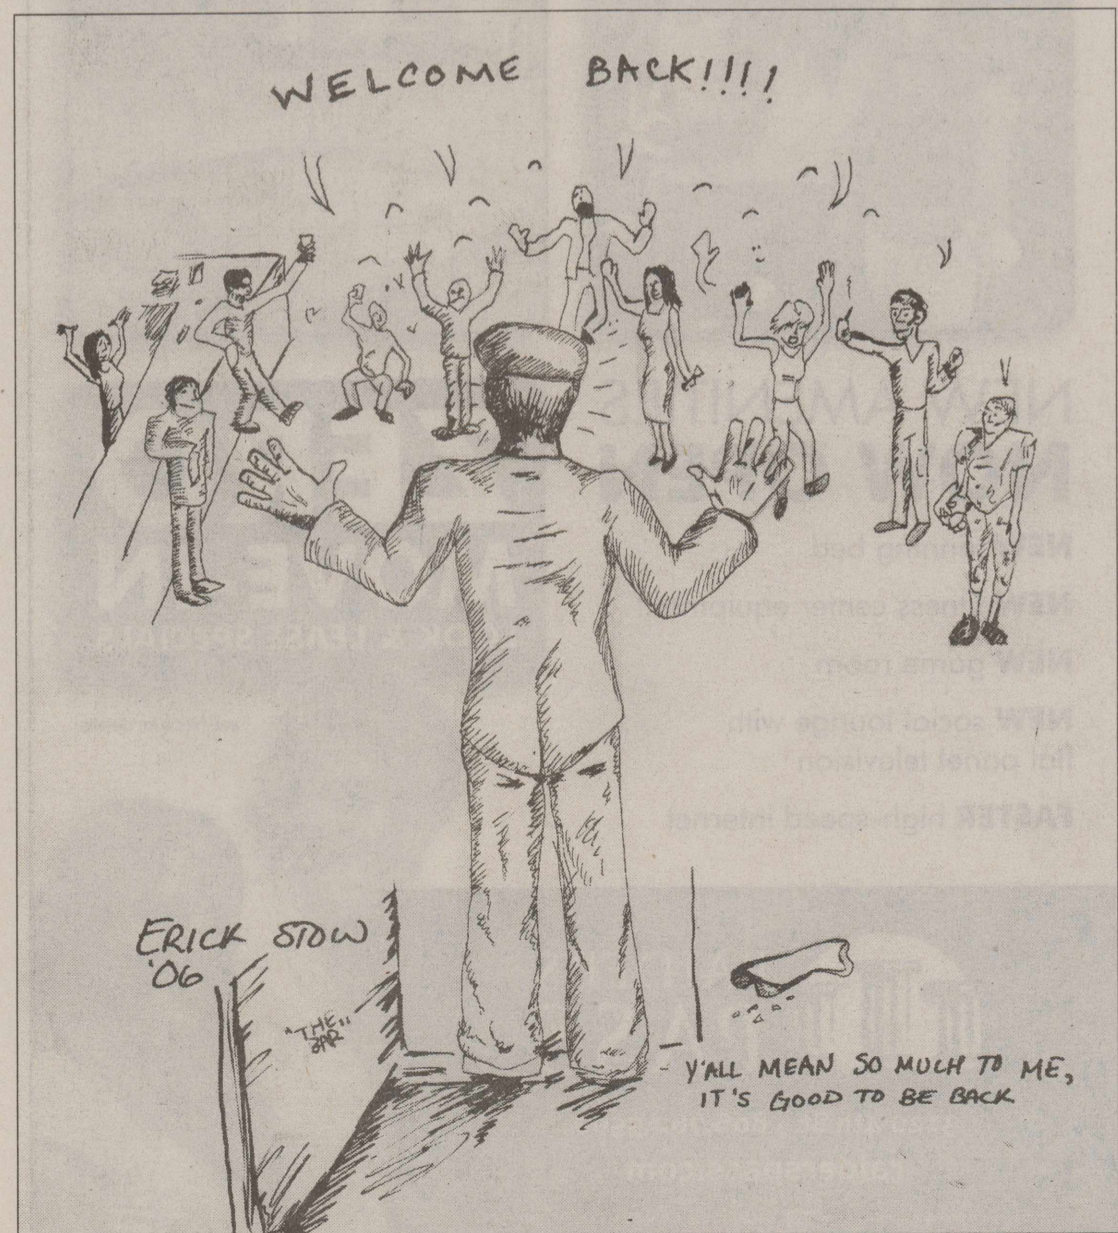 WELCOME BACK!!!!
ERICK STOW
'06
"THE"
Y'ALL MEAN SO MUCH TO ME,
IT'S GOOD TO BE BACK